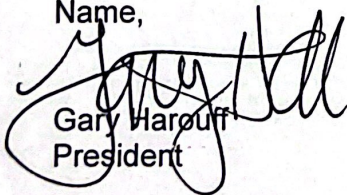 Name,
Gary Harouff
President